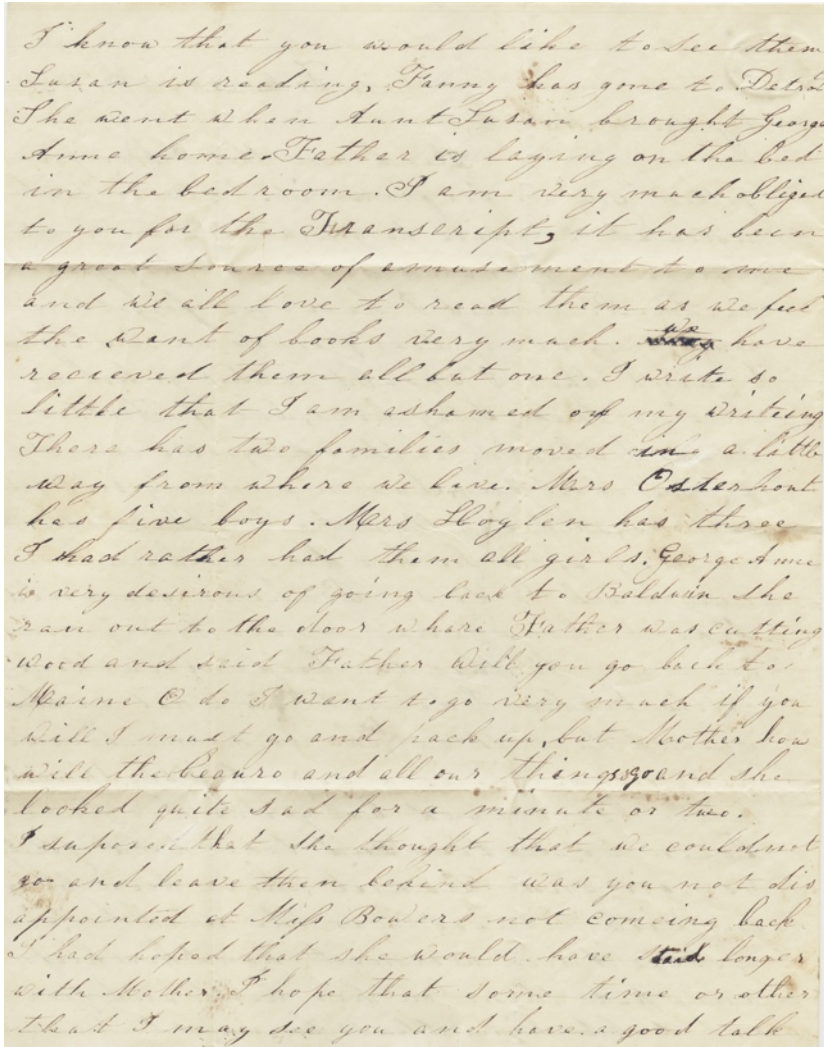 I know that you would like to see them
Susan is reading, Fanny has gone to Detroi
She went when Aunt Susan brought George
Anne home. Father is laying on the bed
in the bedroom. I am very much obliged
to you for the Transcript, it has been
a great source of amusement to me
and we all love to read them as we feel
the want of books very much. we have
recieved them all but one. I write so
little that I am ashamed of my writeing
There has two families moved in a little
way from where we live. Mrs Osterhout
has five boys. Mrs has three
I had rather had them all girls. George Anne
is very desirous of going back to Baldwin she
ran out to the door whare Father was cutting
wood and said Father will you go back to
Maine O do I want to go very much if you
will I must go and pack up, but Mother how
will the beauro and all our things go and she
looked quite sad for a minute or two.
I suposed that she thought that we could not
go and leave them behind was you not dis
appointed at Miss Bowers not comeing back
I had hoped that she would have staid longer
with Mother. I hope that some time or other
that I may see you and have a good talk